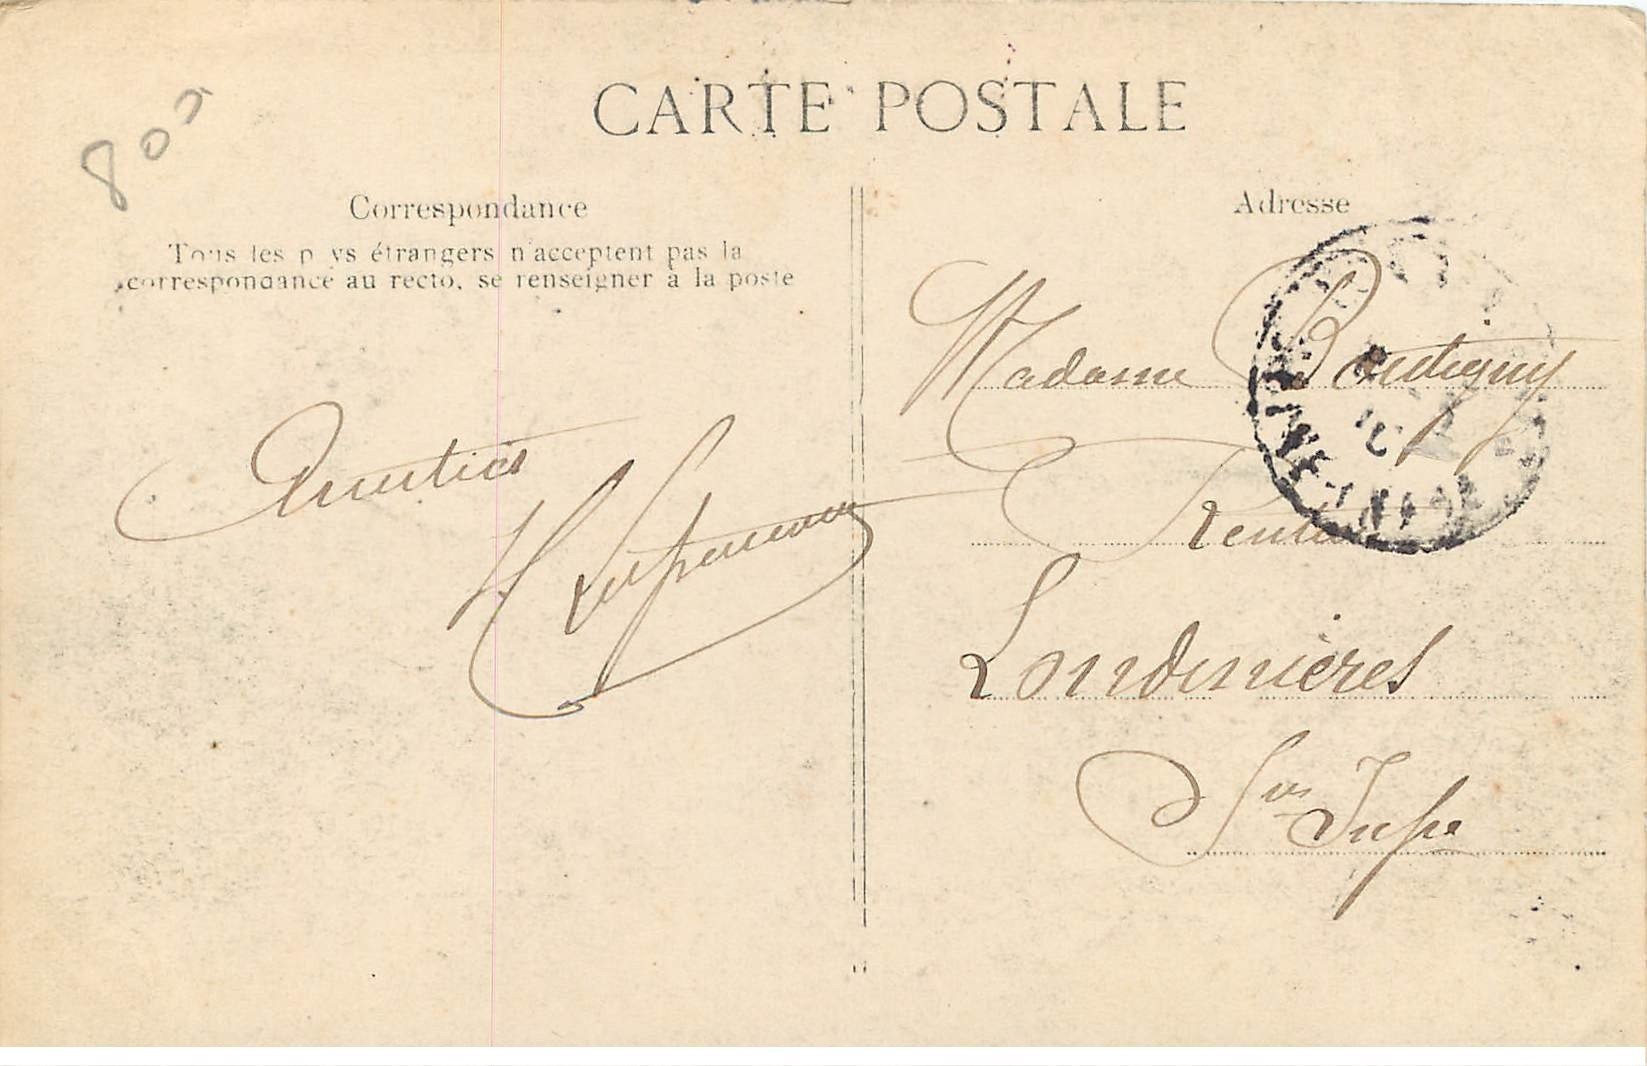 CARTE POSTALE
800
Correspondance
Tous les pays étrangers n'acceptent pas la
correspondance au recto, se renseigner à la poste
Amitiés
Adresse
Madame Boutigny
Rentière
Londinières
Sne Infre
SEINE-INFRE